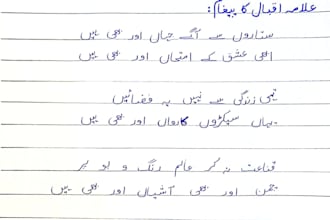 علامہ اقبال کا پیغام:
ستاروں سے آگے جہاں اور بھی ہیں
ابھی عشق کے امتحاں اور بھی ہیں
تہی زندگی سے نہیں یہ فضائیں
یہاں سیکڑوں کارواں اور بھی ہیں
قناعت نہ کر عالم رنگ و بو پر
چمن اور بھی آشیاں اور بھی ہیں